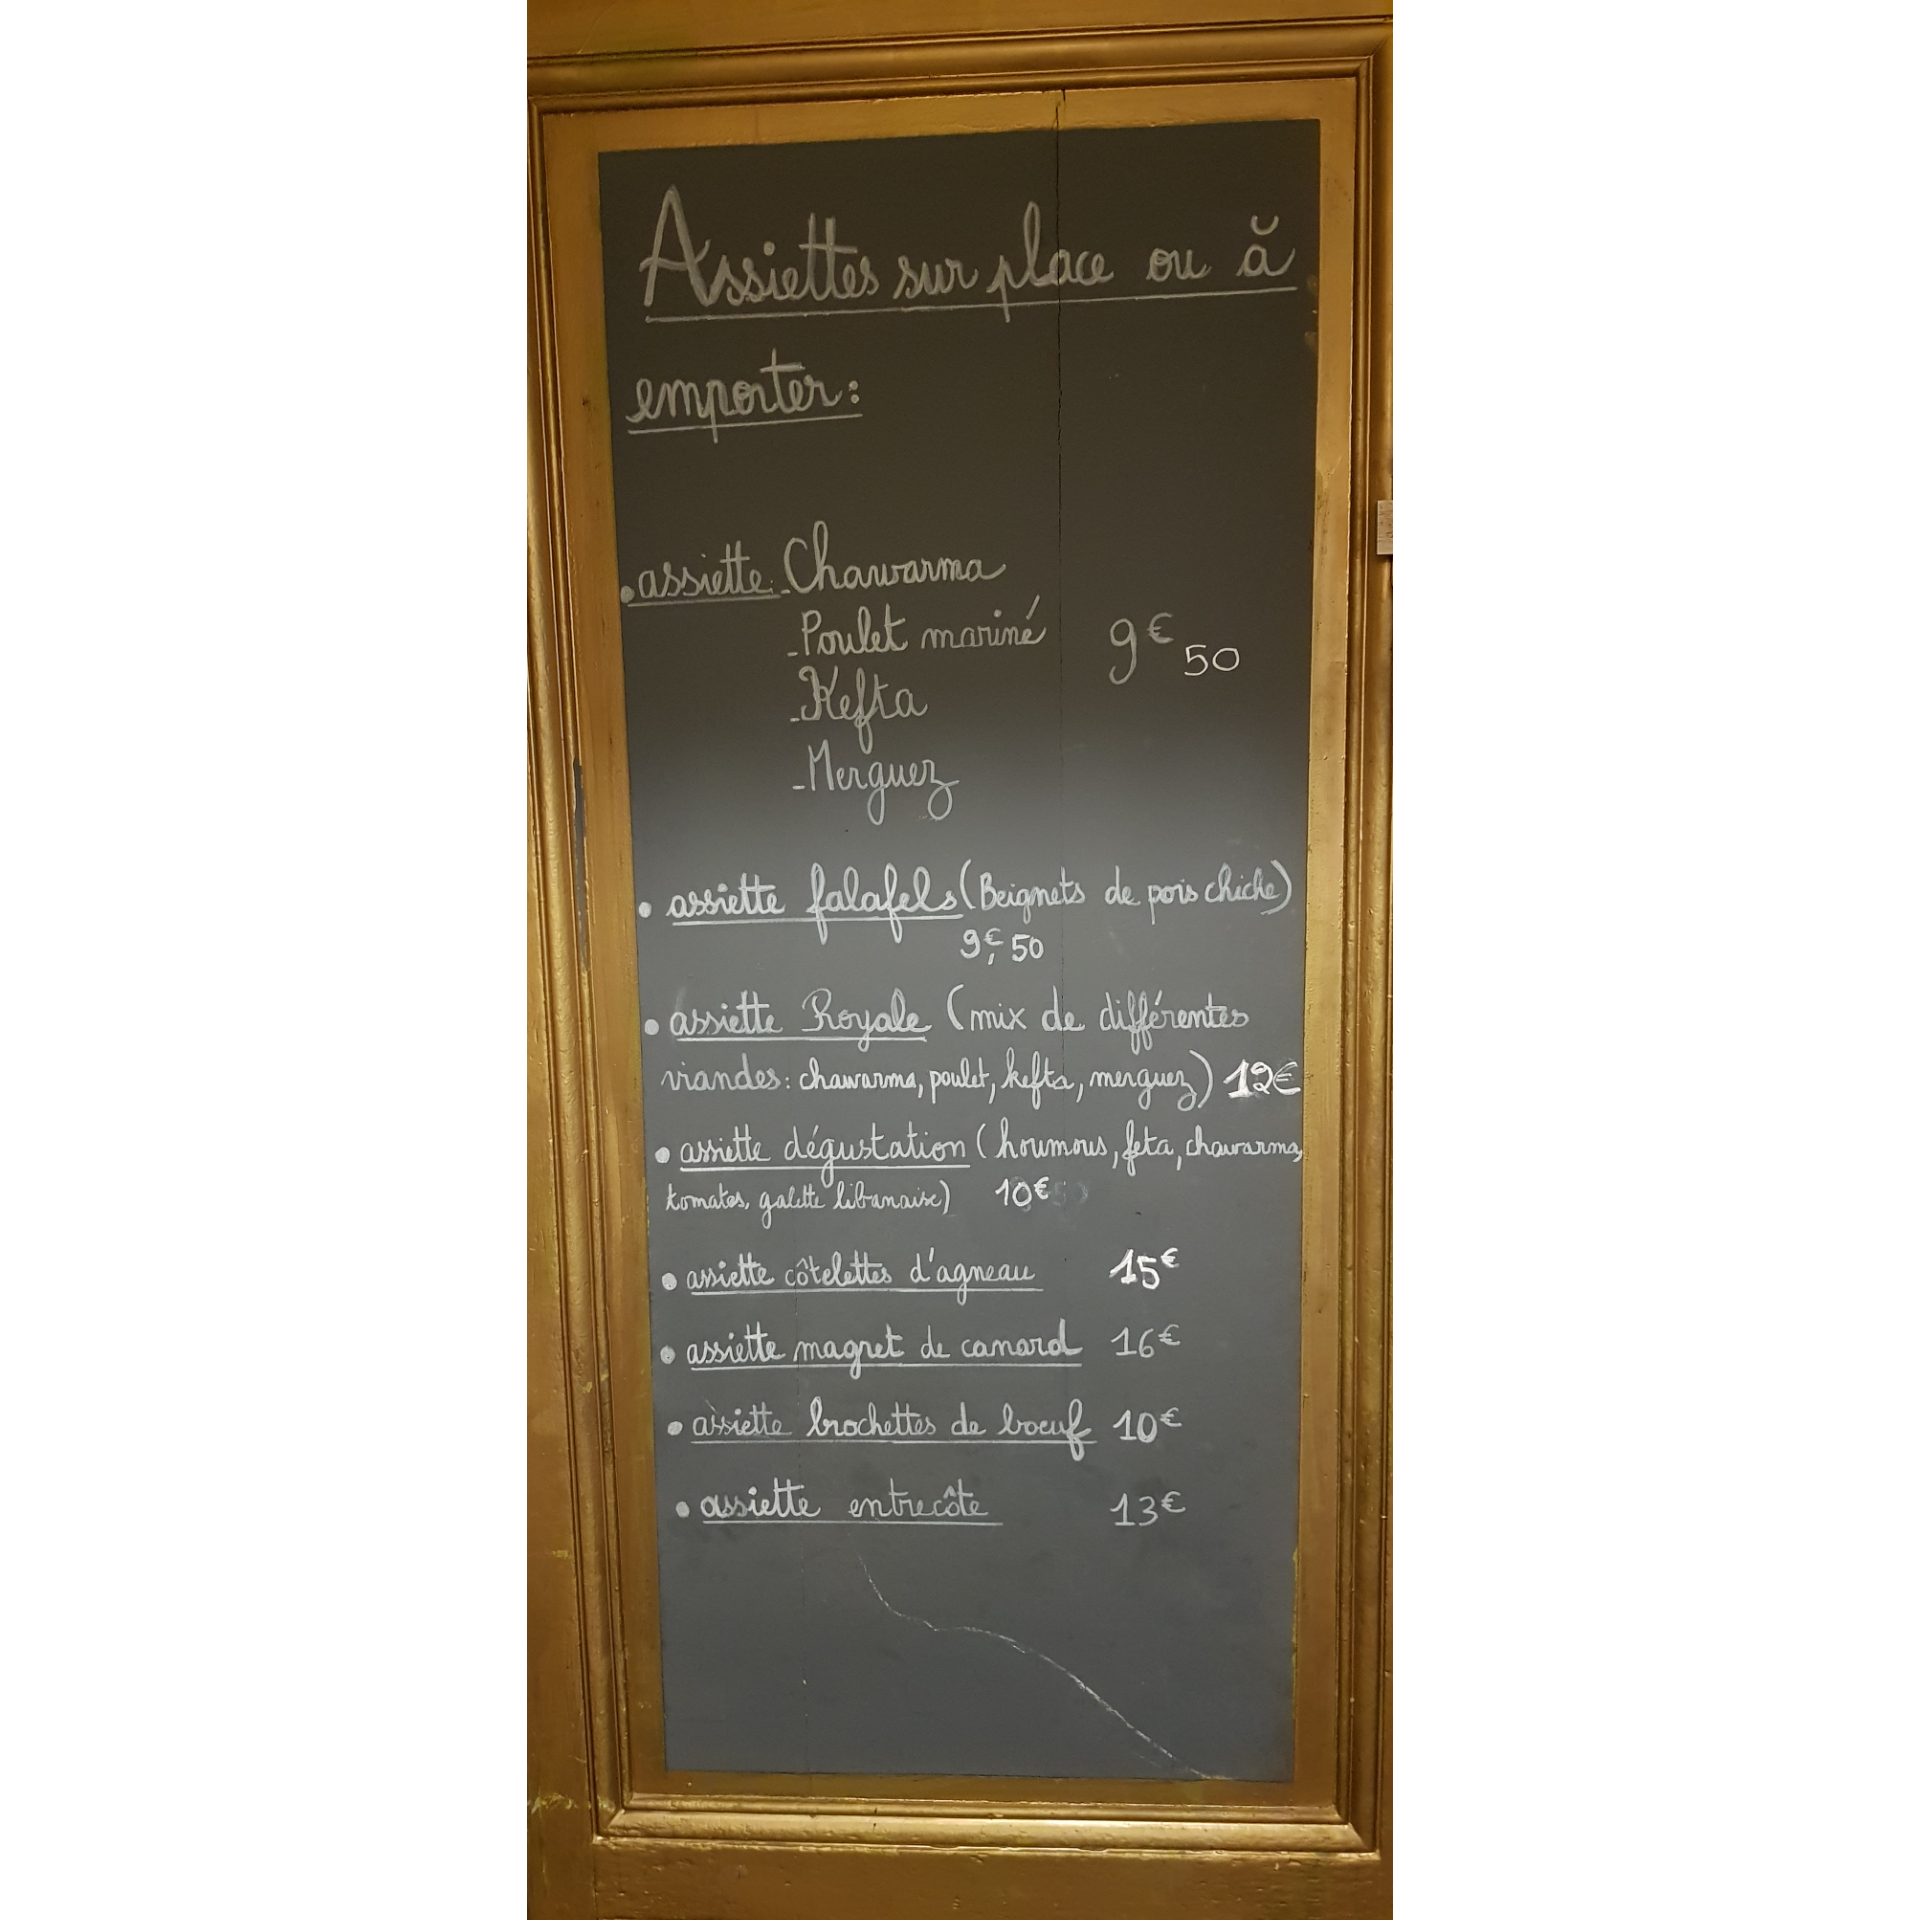 Assiettes sur place ou à
emporter:
• assiette: - Chawarma
- Poulet mariné 9€50
- Kefta
- Merguez
• assiette falafels (Beignets de pois chiche)
9€,50
• assiette Royale (mix de différentes
viandes: chawarma, poulet, kefta, merguez) 12€
• assiette dégustation (houmous, feta, chawarma,
tomates, galette libanaise) 10€
• assiette côtelettes d'agneau 15€
• assiette magret de canard 16€
• assiette brochettes de boeuf 10€
• assiette entrecôte 13€